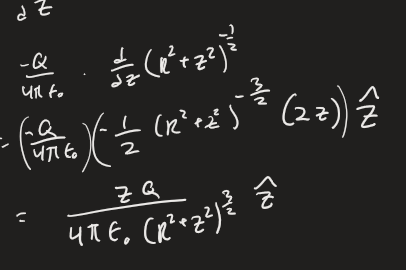 dz
-Q/(4πε₀) · d/dz (R² + z²)^(-1/2)
= (-Q/(4πε₀)) (-1/2 (R² + z²)^(-3/2) (2z)) ẑ
= zQ/(4πε₀ (R² + z²)^(3/2)) ẑ